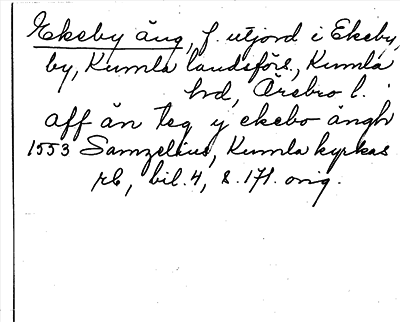 Ekeby äng, f. utjord i Ekeby
by, Kumla landsförs., Kumla
hd, Örebro l.
aff än teg y ekebo ängh
1553 Samzelius, Kumla kyrkas
rb, bil. 4, s. 171. orig.